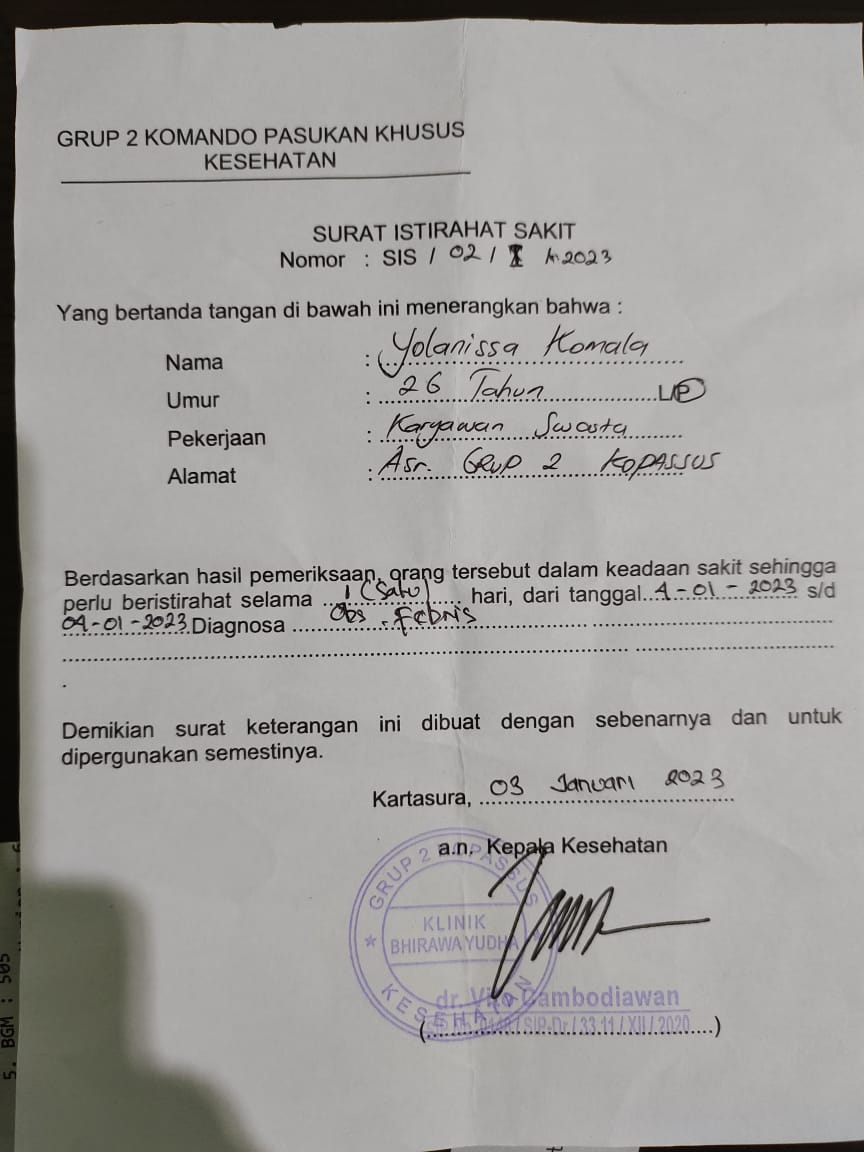 GRUP 2 KOMANDO PASUKAN KHUSUS
KESEHATAN
SURAT ISTIRAHAT SAKIT
Nomor : SIS / 02 / I / 2023
Yang bertanda tangan di bawah ini menerangkan bahwa :
Nama : Yolanissa Komala
Umur : 26 Tahun L/P
Pekerjaan : Karyawan Swasta
Alamat : Asr. GRUP 2 KOPASSUS
Berdasarkan hasil pemeriksaan, orang tersebut dalam keadaan sakit sehingga
perlu beristirahat selama 1 (Satu) hari, dari tanggal 4-01-2023 s/d
04-01-2023 Diagnosa Obs. Febris
Demikian surat keterangan ini dibuat dengan sebenarnya dan untuk
dipergunakan semestinya.
Kartasura, 03 Januari 2023
a.n. Kepala Kesehatan
GRUP 2 KOPASSUS
KLINIK
BHIRAWA YUDHA
KESEHATAN
dr. Cambodiawan
SIP.Dr / 33.11 / XII / 2020
5. BGM : 505